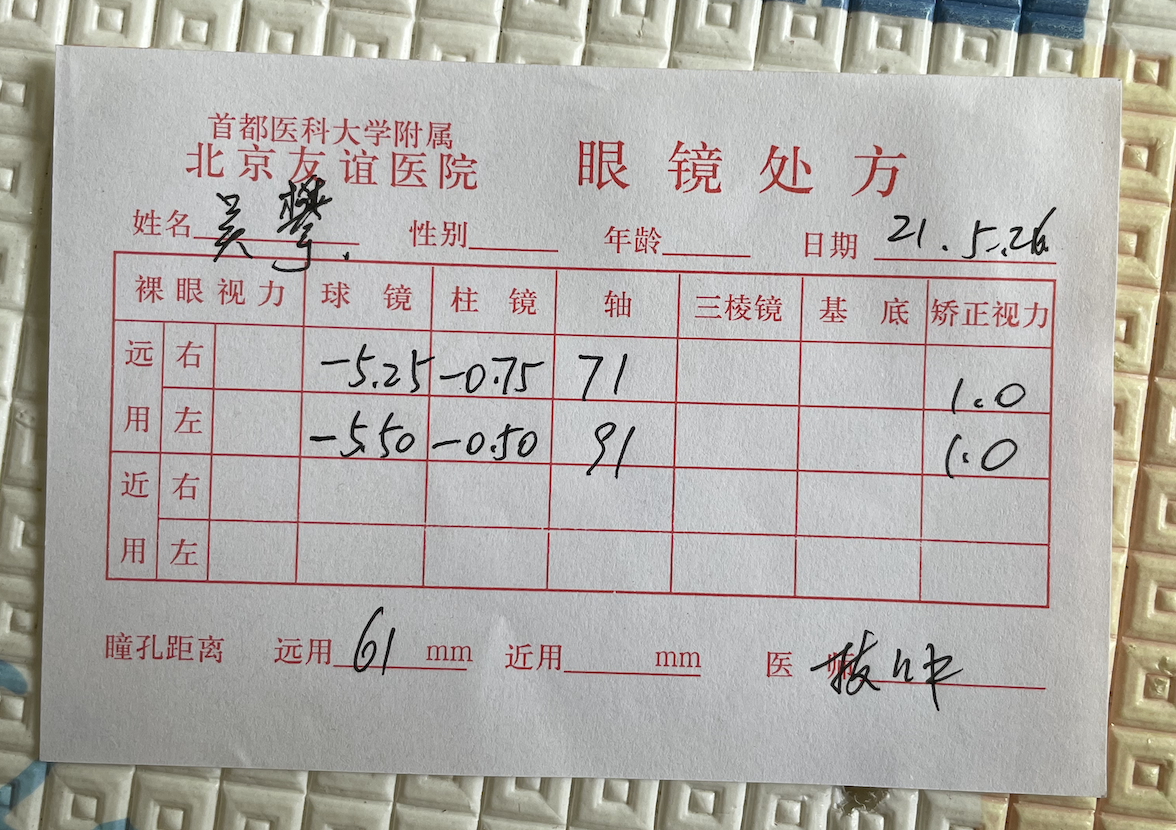 首都医科大学附属
北京友谊医院 眼镜处方
姓名 吴攀. 性别 年龄 日期 21.5.26
裸眼视力 球镜 柱镜 轴 三棱镜 基底 矫正视力
远用 右 -5.25 -0.75 71 1.0
左 -5.50 -0.50 91 1.0
近用 右
左
瞳孔距离 远用 61 mm 近用 mm 医师